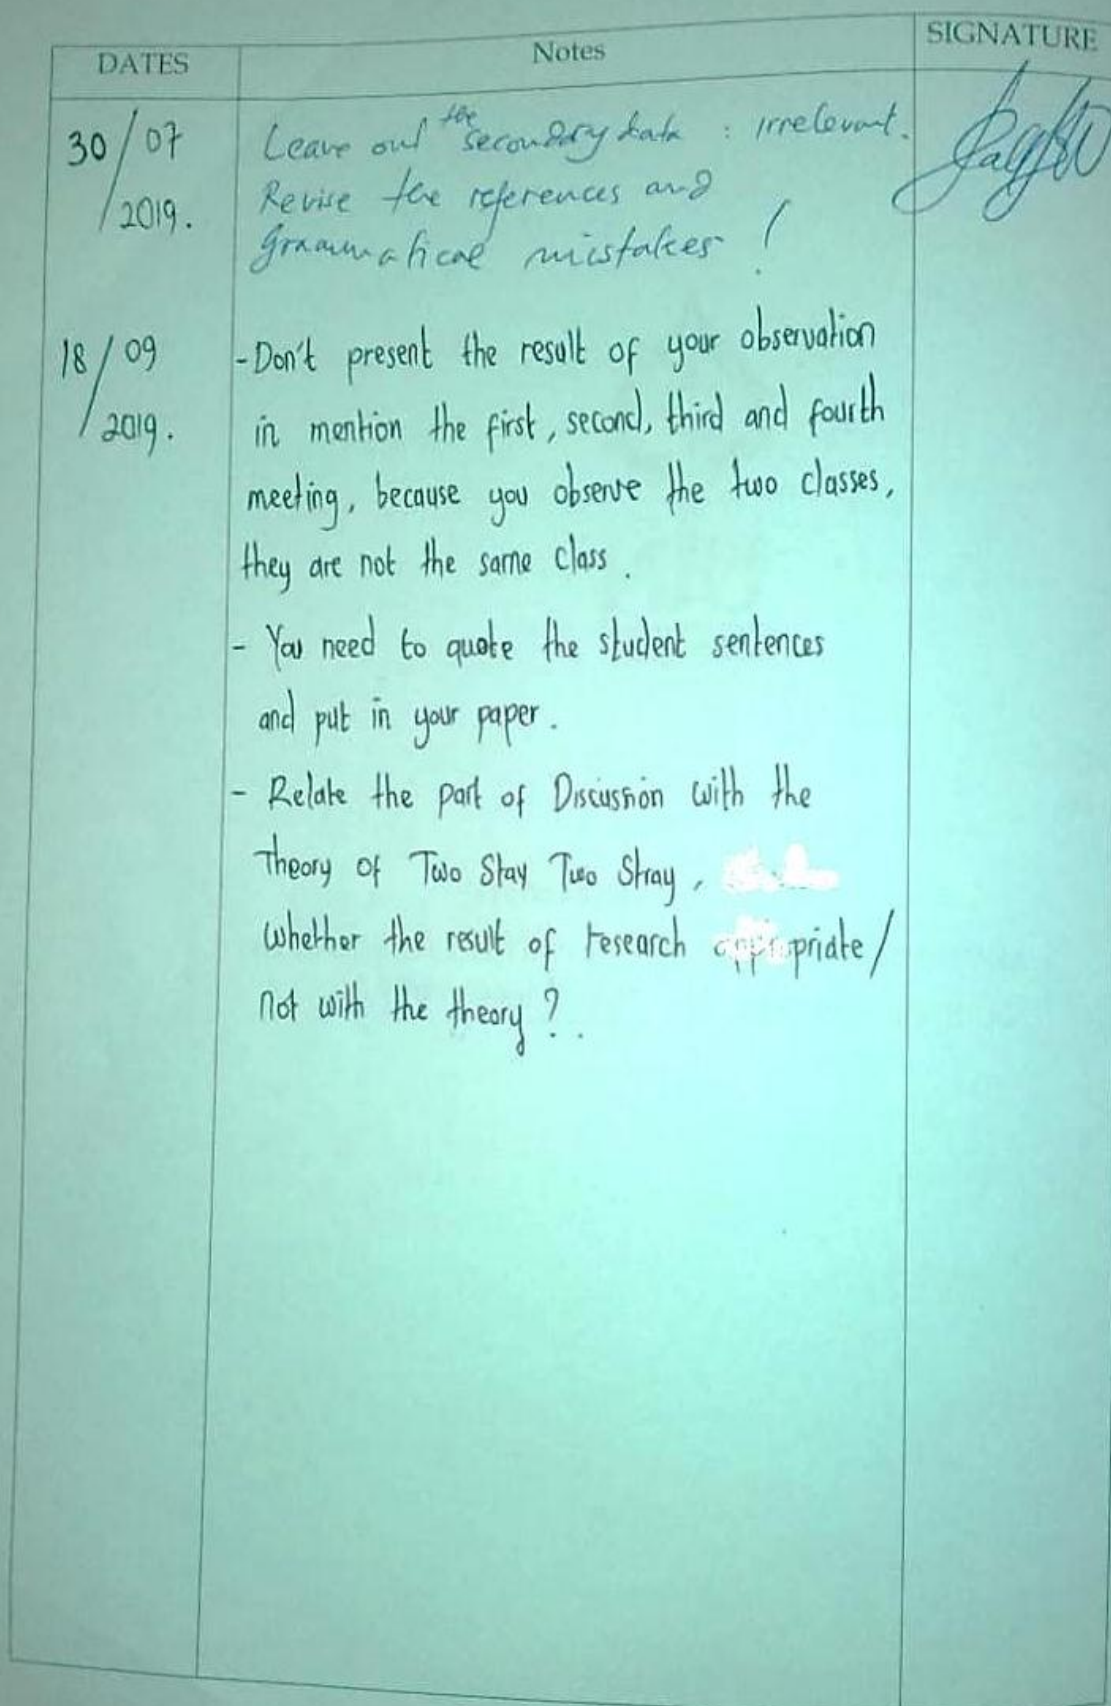 DATES Notes SIGNATURE
30/07 Leave out the secondary data : irrelevant.
/2019. Revise the references and
grammatical mistakes !
18/09 - Don't present the result of your observation
/2019. in mention the first, second, third and fourth
meeting, because you observe the two classes,
they are not the same class.
- You need to quote the student sentences
and put in your paper.
- Relate the part of Discussion with the
Theory of Two Stay Two Stray,
whether the result of research appropriate/
not with the theory ?.